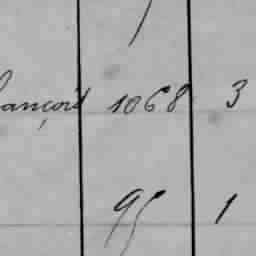 ançois 1068 3
95 1